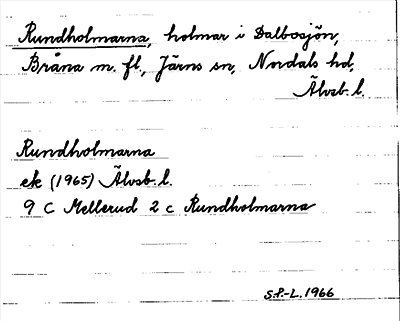 Rundholmarna, holmar i Dalbosjön,
Bråna m. fl., Järns sn, Nordals hd,
Älvsb. l.
Rundholmarna
ek (1965) Älvsb. l.
9 C Mellerud 2 c Rundholmarna
S.F.-L. 1966